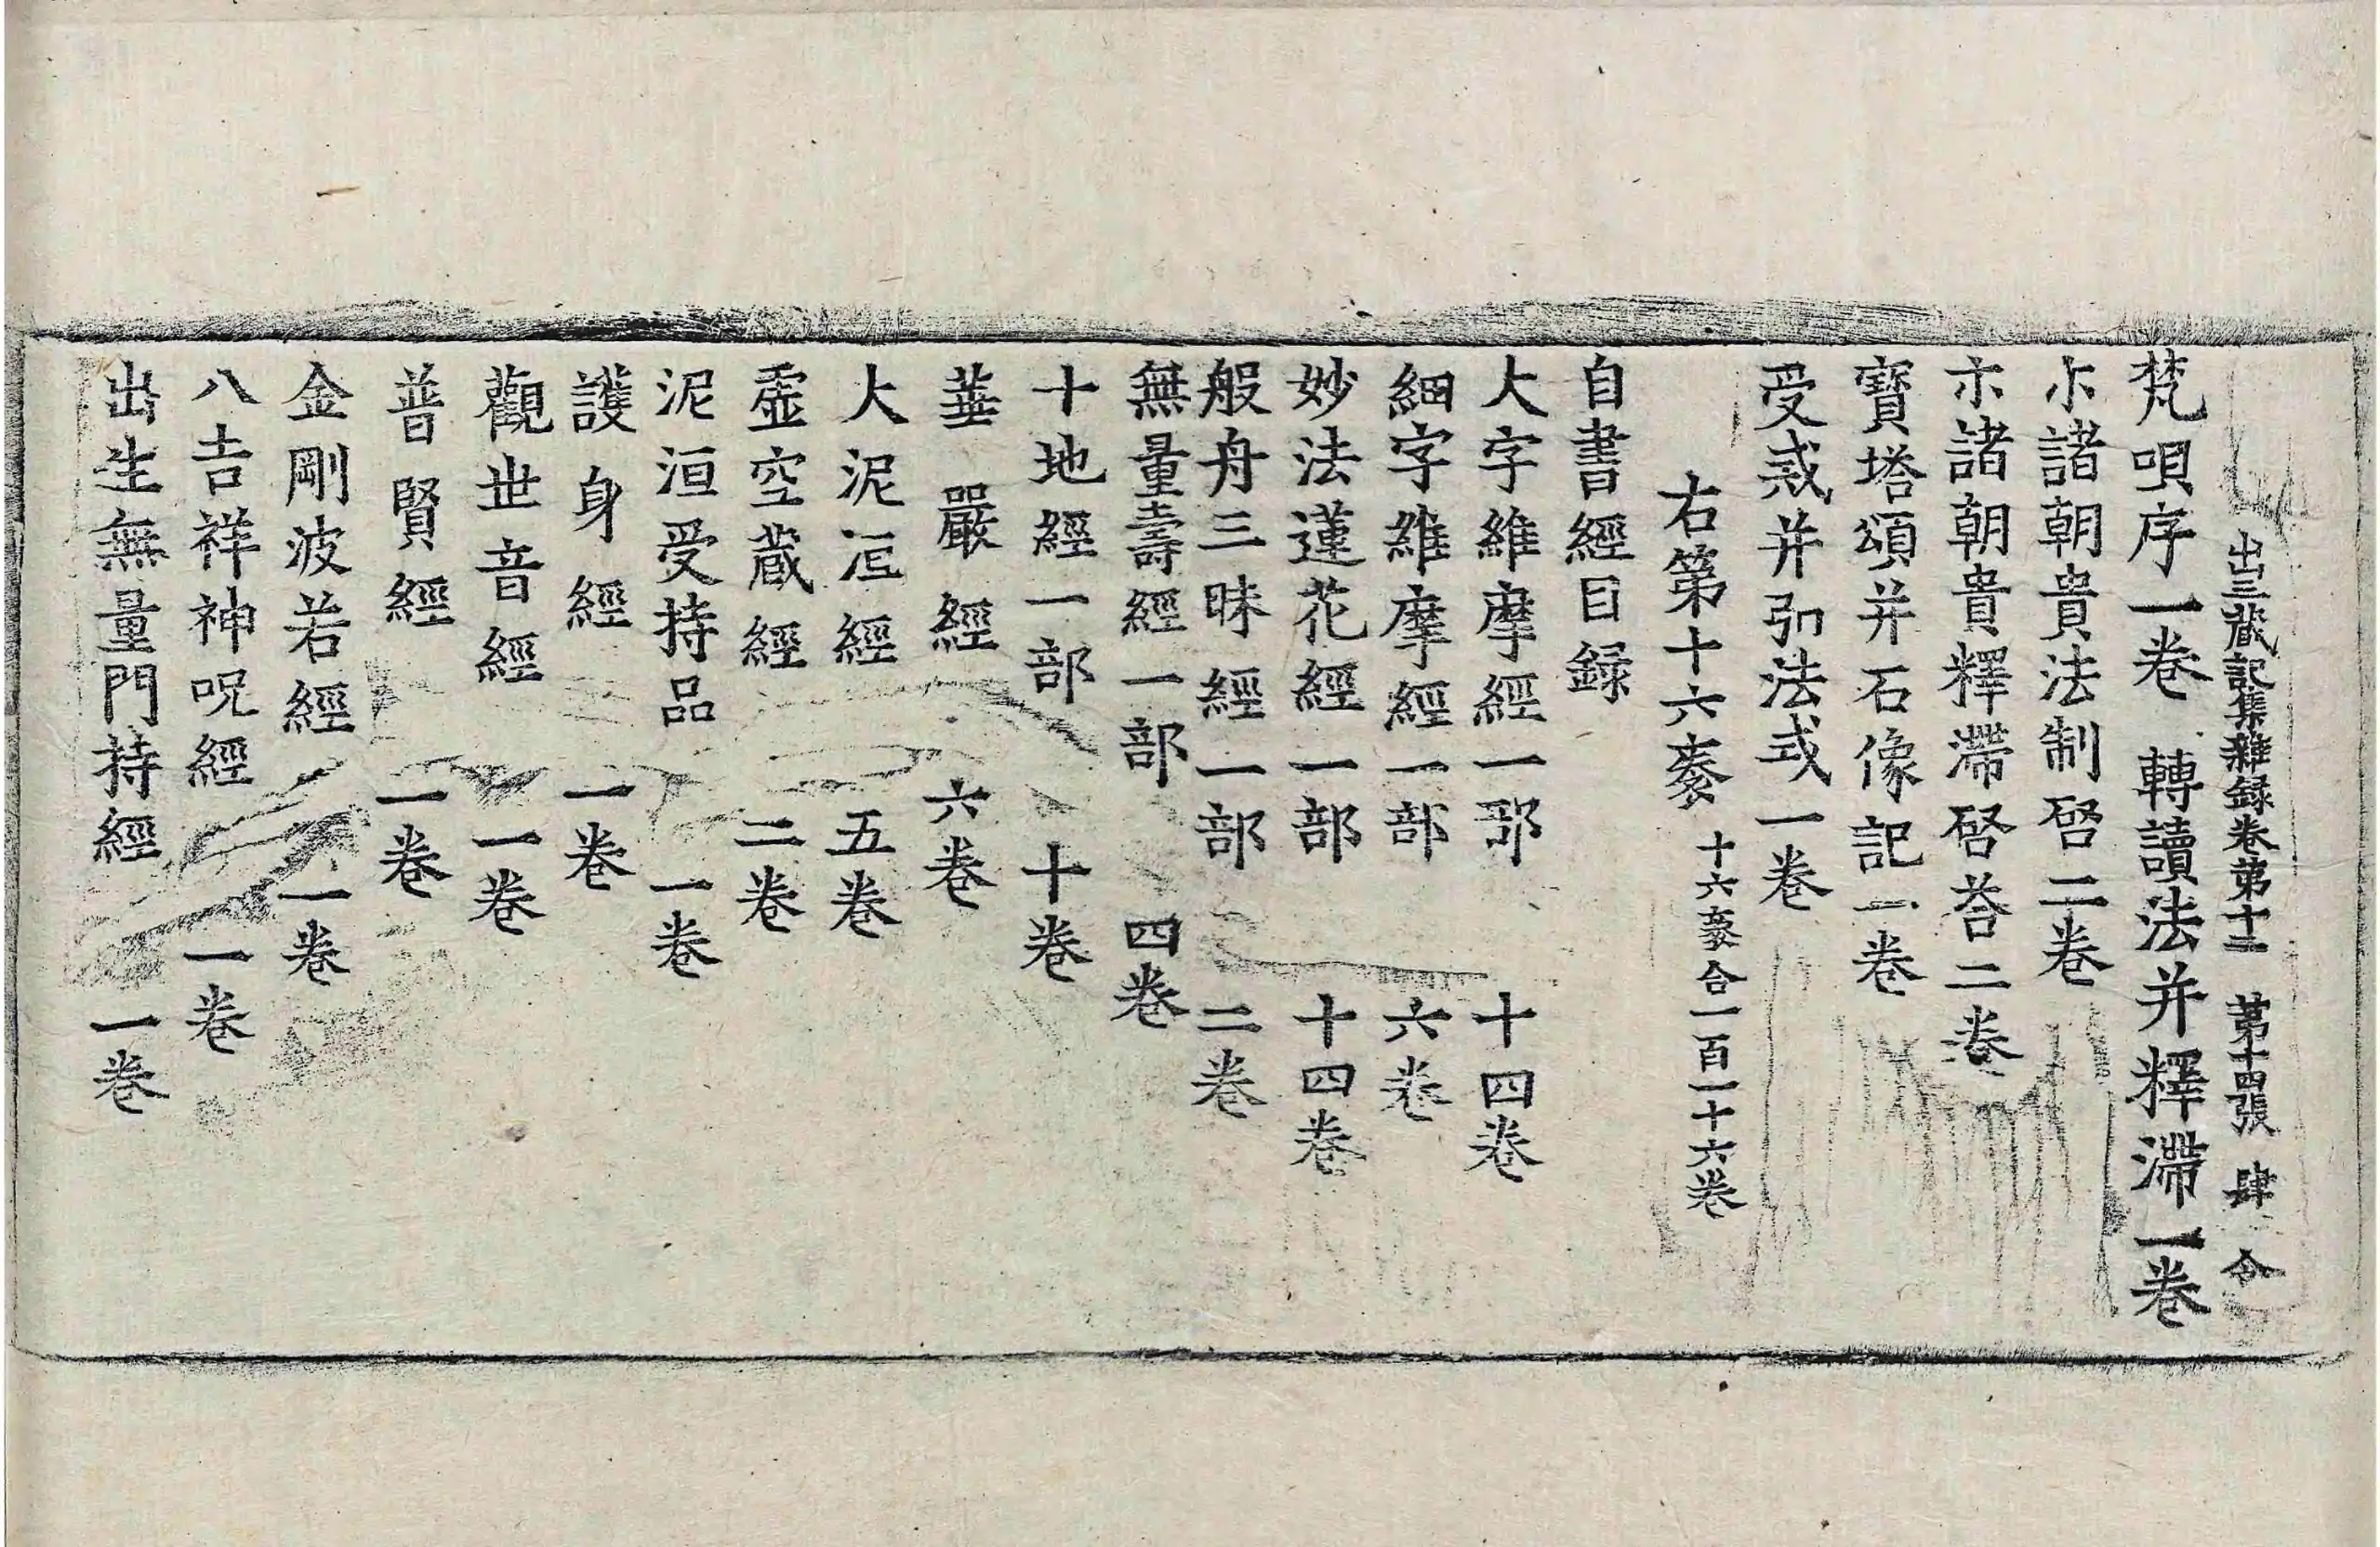 出三藏記集雜録卷第十二　第十四張　肆　令
梵唄序一卷　轉讀法并釋滯一卷
示諸朝貴法制啓二卷
示諸朝貴釋滯啓荅二卷
寶塔頌并石像記一卷
受戒并弘法戒一卷
右第十六袠　十六袠合一百一十六卷
自書經目録
大字維摩經一部　十四卷
細字維摩經一部　六卷
妙法蓮花經一部　十四卷
般舟三昧經一部　二卷
無量壽經一部　四卷
十地經一部　十卷
華嚴經　六卷
大泥洹經　五卷
虛空藏經　二卷
泥洹受持品　一卷
護身經　一卷
觀世音經　一卷
普賢經　一卷
金剛波若經　一卷
八吉祥神呪經　一卷
出生無量門持經　一卷